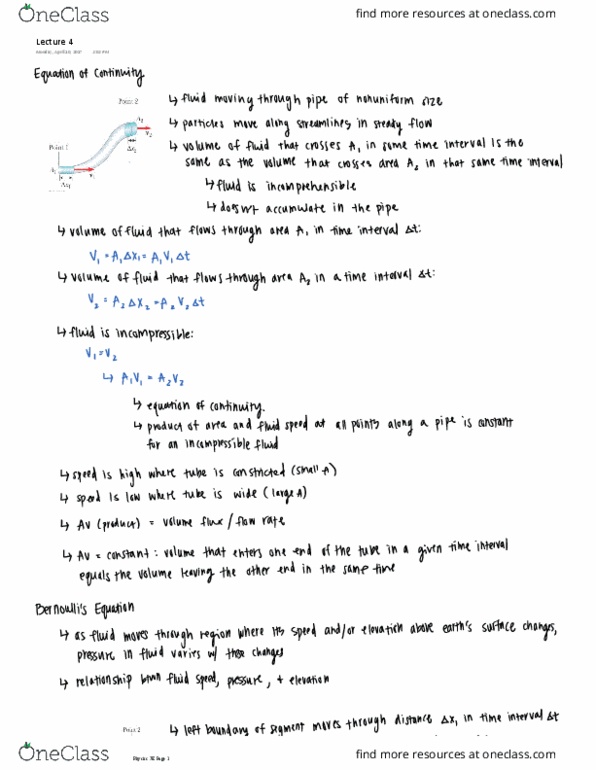 OneClass
find more resources at oneclass.com
Lecture 4
Equation of Continuity
Point 2
Point 1
A₂
V₂
Δx₂
A₁
Δx₁
V₁
↳ fluid moving through pipe of nonuniform size
↳ particles move along streamlines in steady flow
↳ volume of fluid that crosses A₁ in some time interval is the
same as the volume that crosses area A₂ in that same time interval
↳ fluid is incomprehensible
↳ doesn't accumulate in the pipe
↳ volume of fluid that flows through area A₁ in time interval Δt:
V₁ = A₁Δx₁ = A₁V₁Δt
↳ volume of fluid that flows through area A₂ in a time interval Δt:
V₂ = A₂Δx₂ = A₂V₂Δt
↳ fluid is incompressible:
V₁=V₂
↳ A₁V₁ = A₂V₂
↳ equation of continuity.
↳ product of area and fluid speed at all points along a pipe is constant
for an incompressible fluid
↳ speed is high where tube is constricted (small A)
↳ speed is low where tube is wide (large A)
↳ Av (product) = volume flux / flow rate
↳ Av = constant: volume that enters one end of the tube in a given time interval
equals the volume leaving the other end in the same time
Bernoulli's Equation
↳ as fluid moves through region where its speed and/or elevation above earth's surface changes,
pressure in fluid varies w/ these changes
↳ relationship btwn fluid speed, pressure, + elevation
Point 2
↳ left boundary of segment moves through distance Δx₁ in time interval Δt
OneClass
Page 1
find more resources at oneclass.com